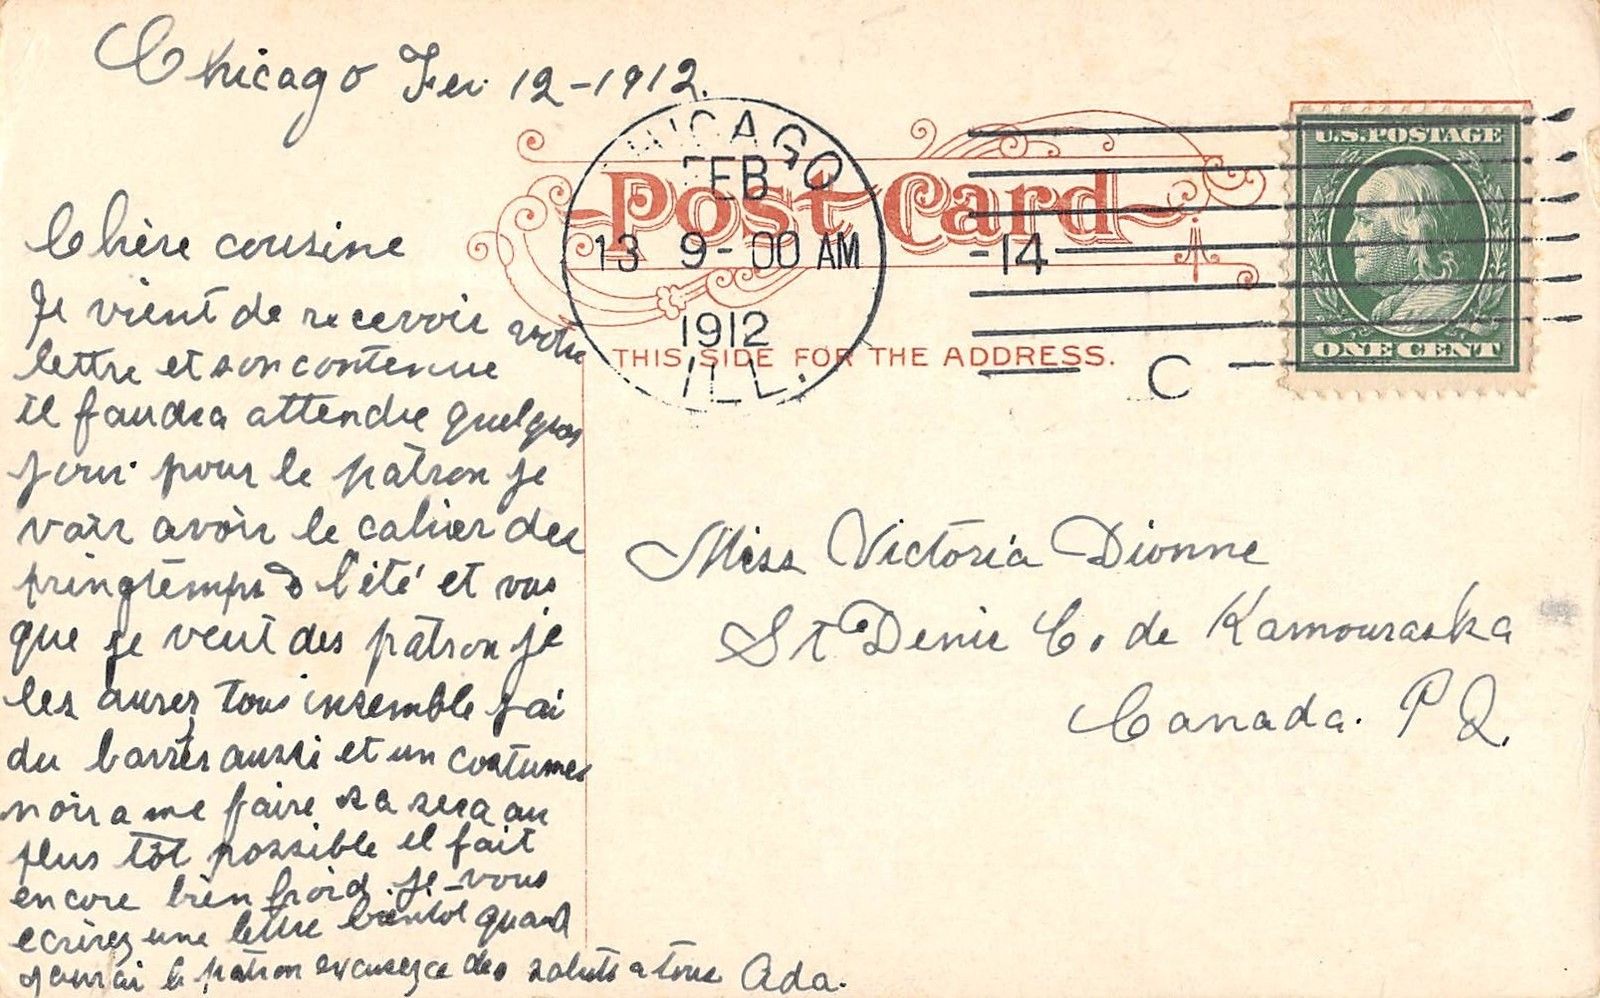 Chicago Fev 12-1912.
CHICAGO
FEB
13 9-00 AM
1912
ILL.
-14
C
Post Card
THIS SIDE FOR THE ADDRESS.
U.S. POSTAGE
ONE CENT
Chère cousine
Je vient de recevoir votre
lettre et son contenue
il faudra attendre quelques
jour pour le patron je
vair avoir le cahier des
pringtemps à l'été et
que je veut des patron je
les aurez tous insemble j'ai
du aussi et un costumes
noir a me faire sa sera au
plus tôt possible il fait
encore bien froid. je vous
ecrirez une lettre bientot quand
j'aurai le patron excusez ce des saluts a tous Ada.
Miss Victoria Dionne
St Denis C. de Kamouraska
Canada. P Q.